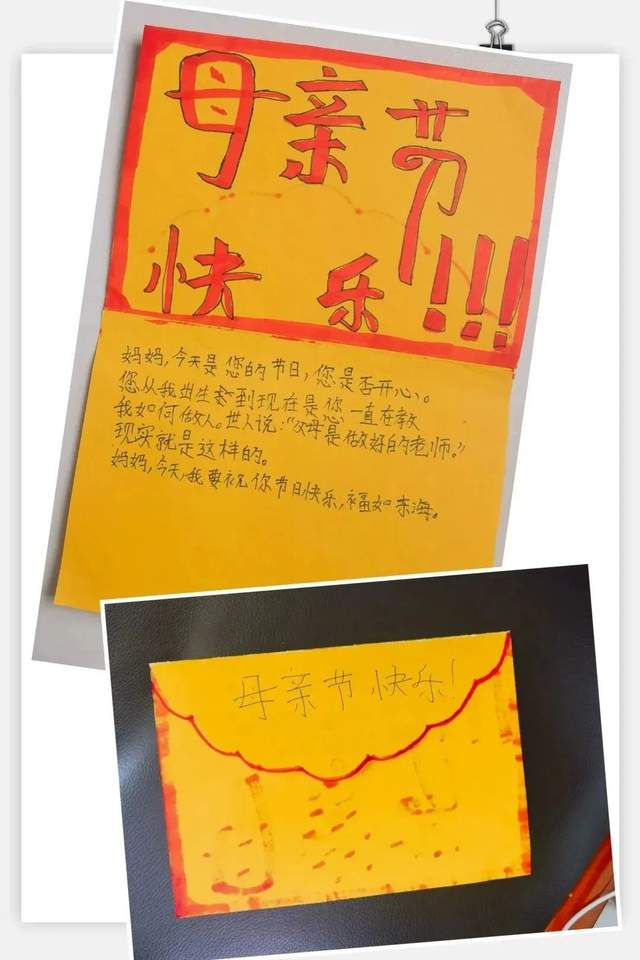 母亲节
快乐!!!
妈妈,今天是您的节日,您是否开心。
您从我出生到现在是您一直在教
我如何做人。世人说:“父母是做好的老师。”
现实就是这样的。
妈妈,今天,我要祝你节日快乐,福如东海。
母亲节快乐!